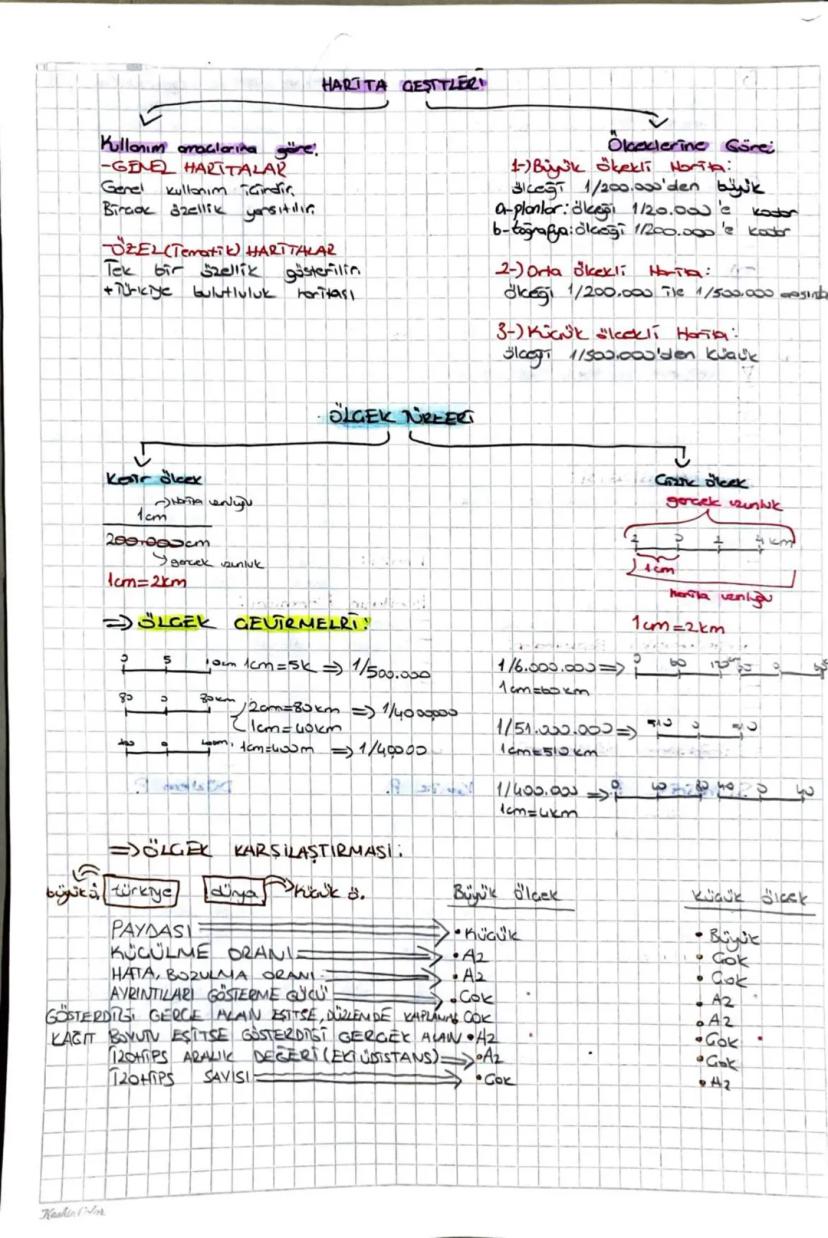 HARİTA ÇEŞİTLERİ
Kullanım amaçlarına göre:
-GENEL HARİTALAR
Genel kullanım içindir.
Birçok özellik yansıtılır.
-ÖZEL (Tematik) HARİTALAR
Tek bir özellik gösterilir.
+Türkiye bulutluluk haritası
Ölçeklerine Göre:
1-) Büyük ölçekli Harita:
ölçeği 1/200.000'den büyük
a-planlar: ölçeği 1/20.000'e kadar
b-toğrafya: ölçeği 1/200.000'e kadar
2-) Orta ölçekli Harita:
ölçeği 1/200.000 ile 1/500.000 arasında
3-) Küçük ölçekli Harita:
ölçeği 1/500.000'den küçük
ÖLÇEK TÜRLERİ
Kesir ölçek
harita uzunluğu
1cm
200.000cm
gerçek uzunluk
1cm=2km
Çizik ölçek
gerçek uzunluk
2 0 2 4 km
1cm
harita uzunluğu
1cm=2km
⇒ ÖLÇEK ÇEVİRMELRİ:
0 5 10km 1cm=5k ⇒ 1/500.000
80 0 80km 2cm=80km ⇒ 1/4000000
1cm=40km
400 0 400m 1cm=400m ⇒ 1/40000
1/6.000.000 ⇒ 0 60 120
1cm=60km
1/51.000.000 ⇒ 510 0 510
1cm=510km
1/400.000 ⇒ 0 40 80 40 0 40
1cm=4km
⇒ ÖLÇEK KARŞILAŞTIRMASI:
büyük ö. türkiye dünya küçük ö. Büyük ölçek Küçük ölçek
PAYDASI • Küçük • Büyük
KÜÇÜLME ORANI • Az • Çok
HATA, BOZULMA ORANI • Az • Çok
AYRINTILARI GÖSTERME GÜCÜ • Çok • Az
GÖSTERDİĞİ GERÇE ALAN EŞİTSE, DÜZLEMDE KAPLANAN ÇOK • Az
KAĞIT BOYUTU EŞİTSE GÖSTERDİĞİ GERÇEK ALAN • Az • Çok
İZOHİPS ARALIK DEĞERİ (EKÜİDİSTANS) • Az • Çok
İZOHİPS SAYISI • Çok • Az